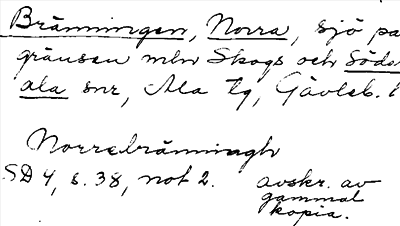 Bränningen, Norra, sjö på
gränsen mln Skogs och Söder
ala snr, Ala tg, Gävleb. l
Norrebränningh
SD 4, s. 38, not 2. avskr. av
gammal
kopia.